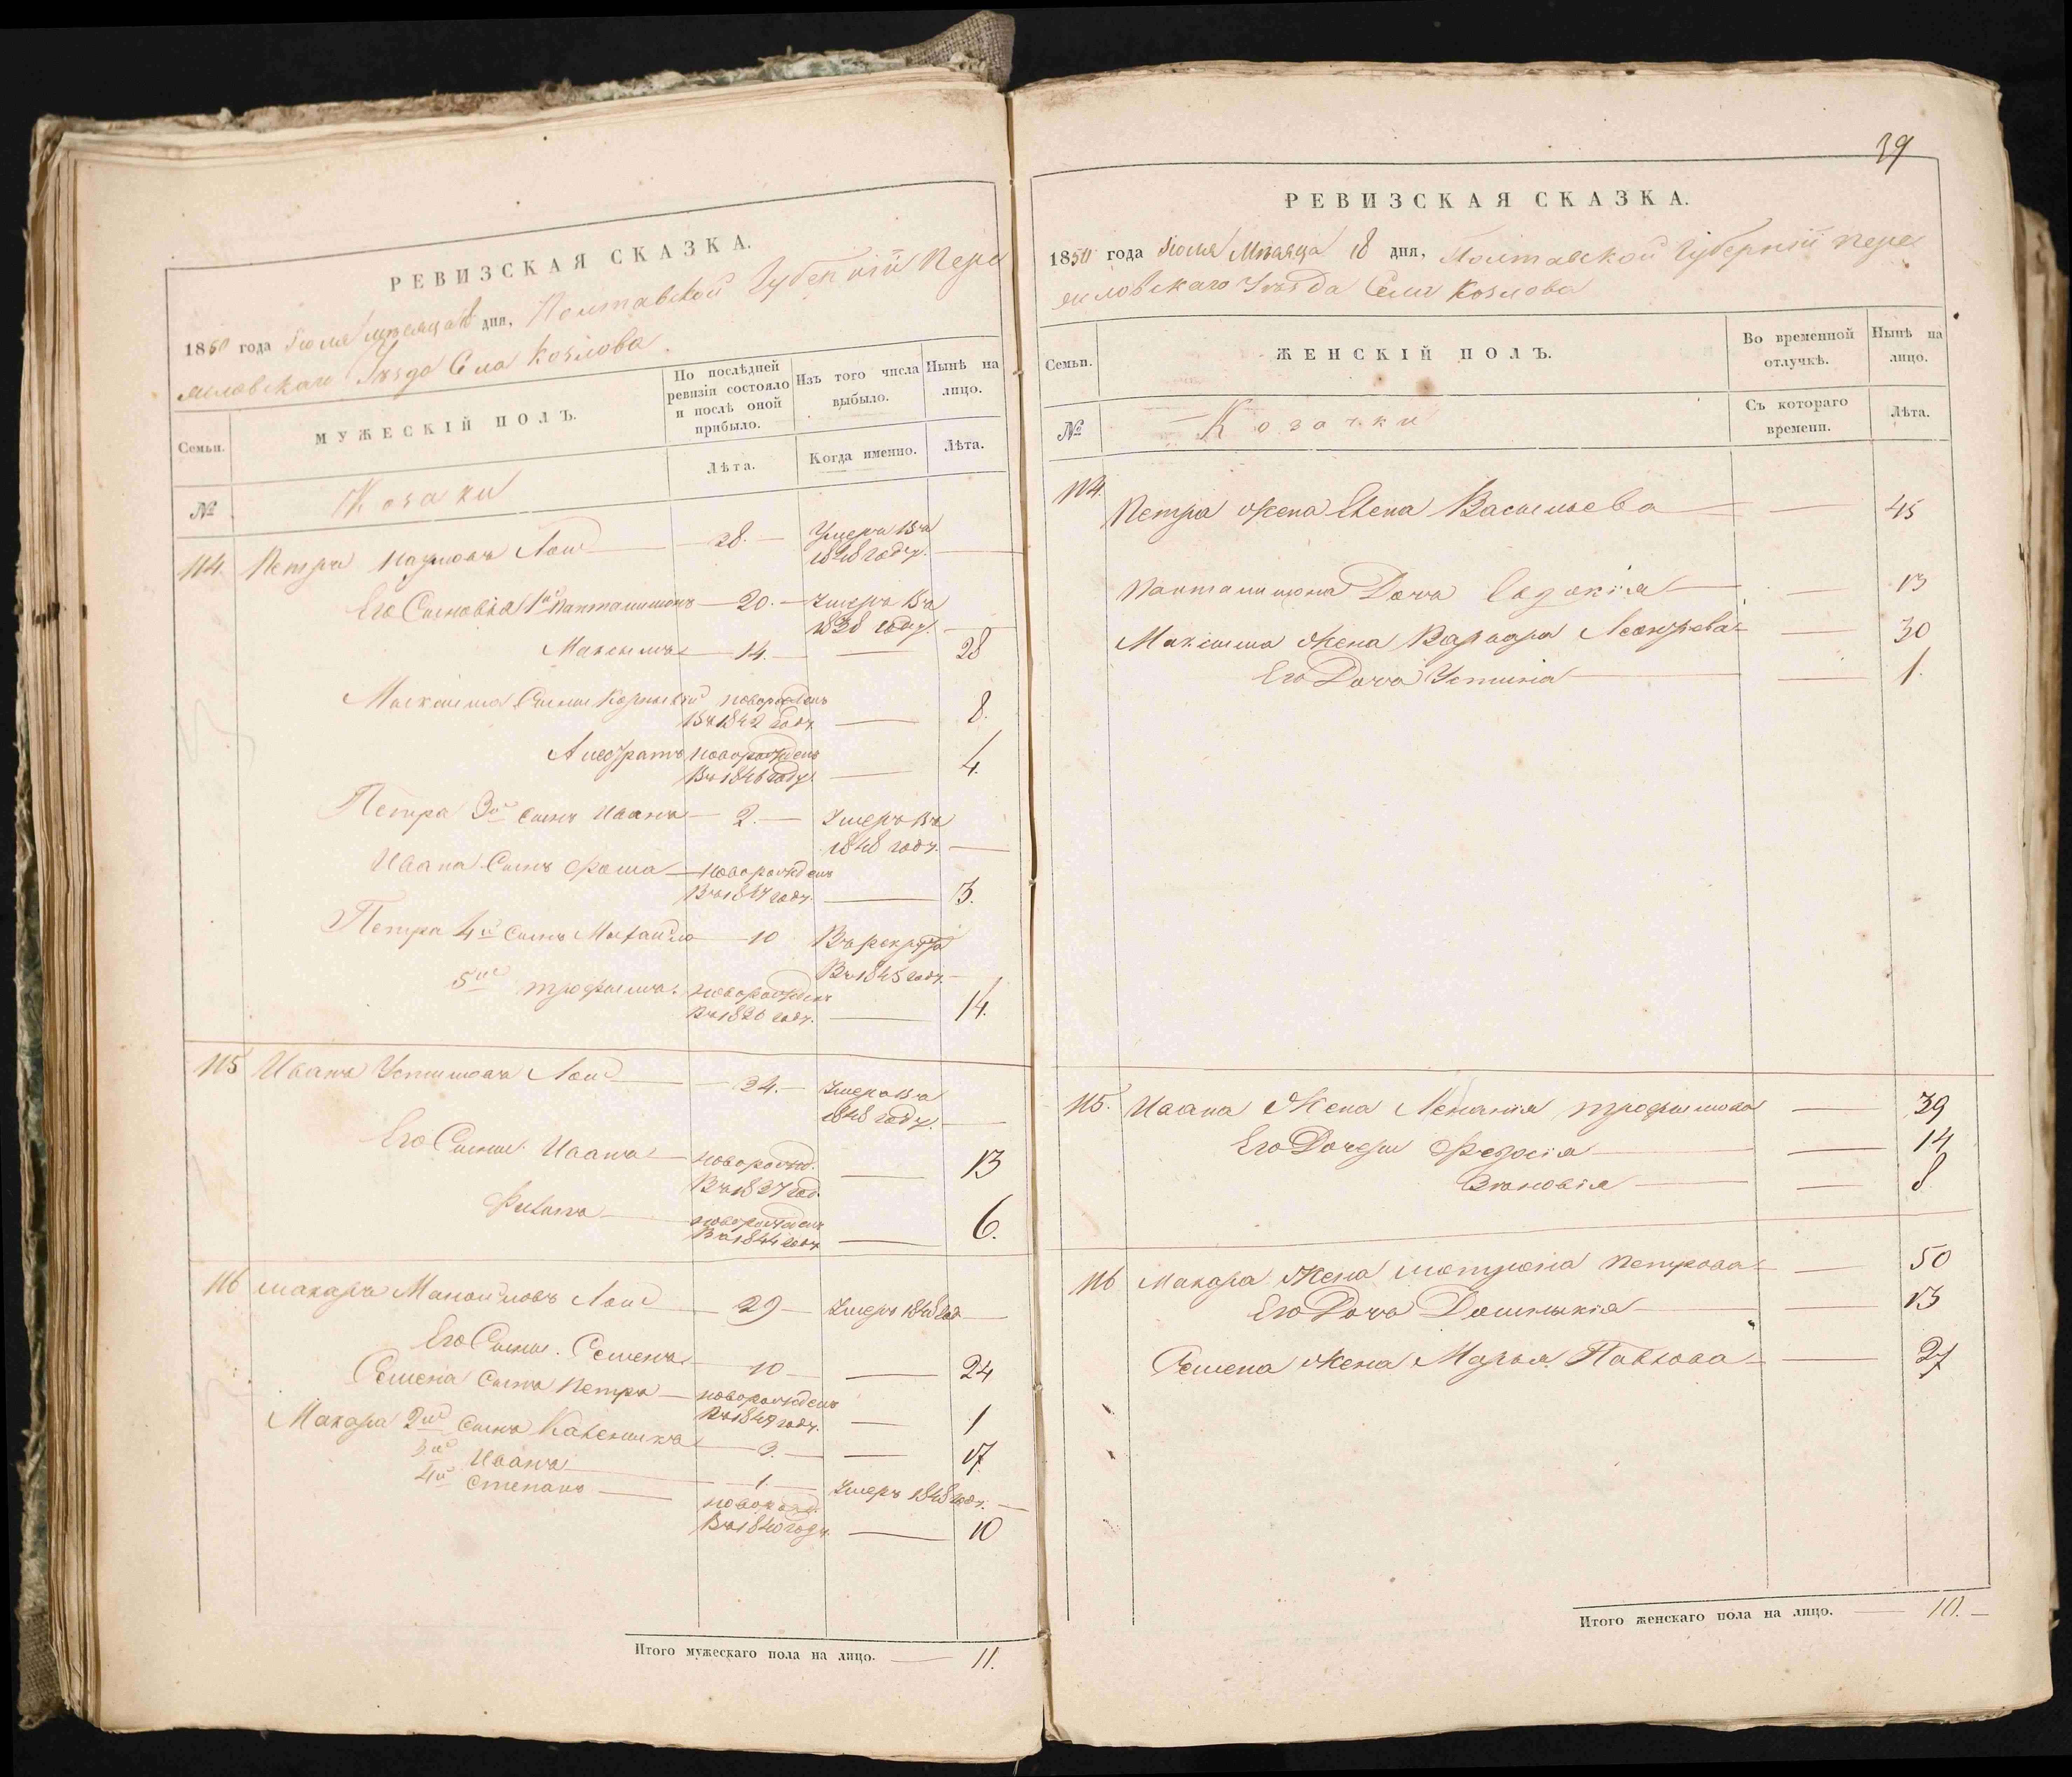 РЕВИЗСКАЯ СКАЗКА.
1850 года Июля месяца 18 дня, Полтавской Губернїи Пере
яславскаго Уѣзда Села Козлова
Семьи.
МУЖЕСКІЙ ПОЛЪ.
По послѣдней ревизіи состояло и послѣ оной прибыло.
Изъ того числа выбыло.
Нынѣ на лицо.
Лѣта.
Когда именно.
Лѣта.
№
Козаки
114. Петръ Лош 28. Умеръ Въ
1848 году.
Его Сыновья 1й Пантелимонъ 20. Умеръ Въ
1838 году.
Максимъ 14. 28
Максима Сыны Корнилій новорожденъ
Въ 1842 году 8.
новорожденъ
Въ 1846 году. 4.
Петра 3й сынъ Иванъ 2. Умеръ Въ
1848 году.
Ивана Сынъ Фома новорожденъ
Въ 1847 году. 3.
Петра 4й Сынъ Михайло 10 Въ рекруты
Въ 1845 году.
5й Трофимъ. новорожденъ
Въ 1836 году. 14.
115 Иванъ Устимовъ Лош 24. Умеръ Въ
1848 году.
Его Сыны. Иванъ новорожд.
Въ 1837 год. 13
новорожденъ
Въ 1844 году 6.
116 Макаръ Мануйловъ Лош 29 Умеръ 1848 год
Его Сыны. Семенъ 10 24
Семена Сынъ Петръ новорожденъ
Въ 1849 году. 1
Макара 2й Сынъ Каленикъ 3. 17
3й Иванъ 1. Умеръ 1848 году.
4й Степанъ новорожд.
Въ 1840 году. 10
Итого мужескаго пола на лицо. 11.
39
РЕВИЗСКАЯ СКАЗКА.
1850 года Июля Месяца 18 дня, Полтавской Губернїи Пере
яславскаго Уѣзда Села Козлова
Семьи.
ЖЕНСКІЙ ПОЛЪ.
Во временной отлучкѣ.
Нынѣ на лицо.
№
Козачки
Съ котораго времени.
Лѣта.
114. Петра Жена Елена Васильева 45
Пантелимона Дочь Евдокія 13
Максима Жена Варвара 30
Его Дочь Устинія 1.
115. Ивана Жена Трофимова 39
Его Дочери Федосія 14
Зѣновія 8
116 Макара Жена Мотрона Петрова 50
Его Дочь Домникія 13
Семена Жена Марья Павлова 27
Итого женскаго пола на лицо. 10.